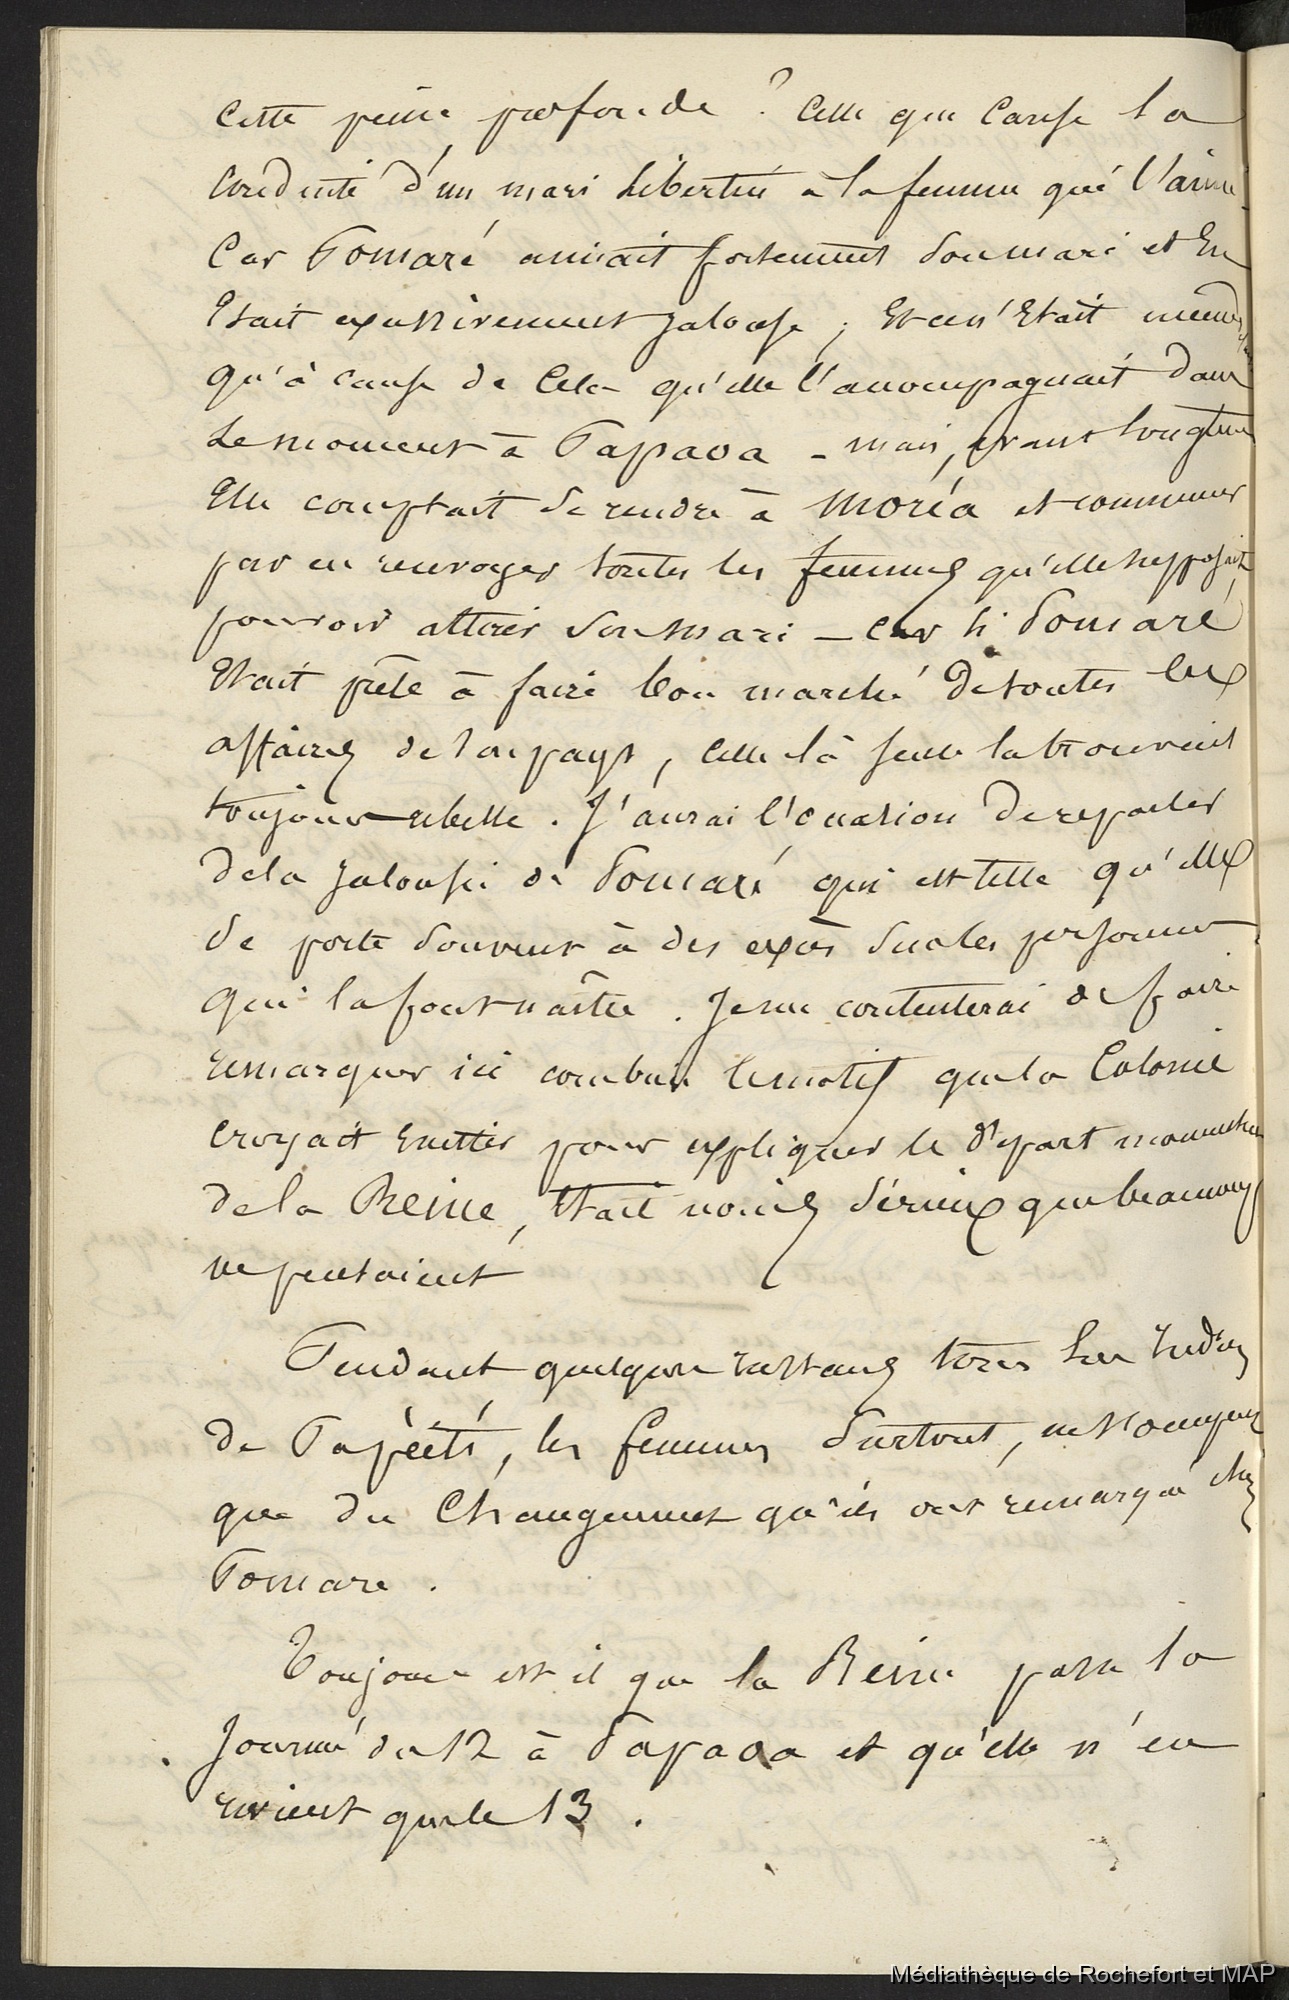 cette peine profonde ? Celle que cause la
conduite d'un mari libertin à la femme qui l'aime.
Car Pomaré aimait fortement son mari et en
était excessivement jalouse ; et ce n'était même
qu'à cause de cela qu'elle l'accompagnait dans
le moment à Papaoa - mais, avant longtems
elle comptait se rendre à Moréa et commencer
par en renvoyer toutes les femmes qu'elle supposait
pouvoir attirer son mari - car si Pomaré
était prête à faire bon marché de toutes les
affaires de son pays, celle là seule la trouvait
toujours rebelle. J'aurai l'occasion de reparler
de la jalousie de Pomaré qui est telle qu'elle
se porte souvent à des excès sur les personnes
qui la font naître. Je me contenterai de faire
remarquer ici combien le motif que la Colonie
croyait émettre pour expliquer le départ momentané
de la Reine, était moins sérieux que beaucoup
ne pensaient
Pendant quelques instans tous les Indiens
de Papèïti, les femmes surtout, ne s'occupent
que du changement qu'ils ont remarqué chez
Pomare.
Toujours est il que la Reine passe la
journée du 12 à Papaoa et qu'elle n'en
revient que le 13.
Médiathèque de Rochefort et MAP